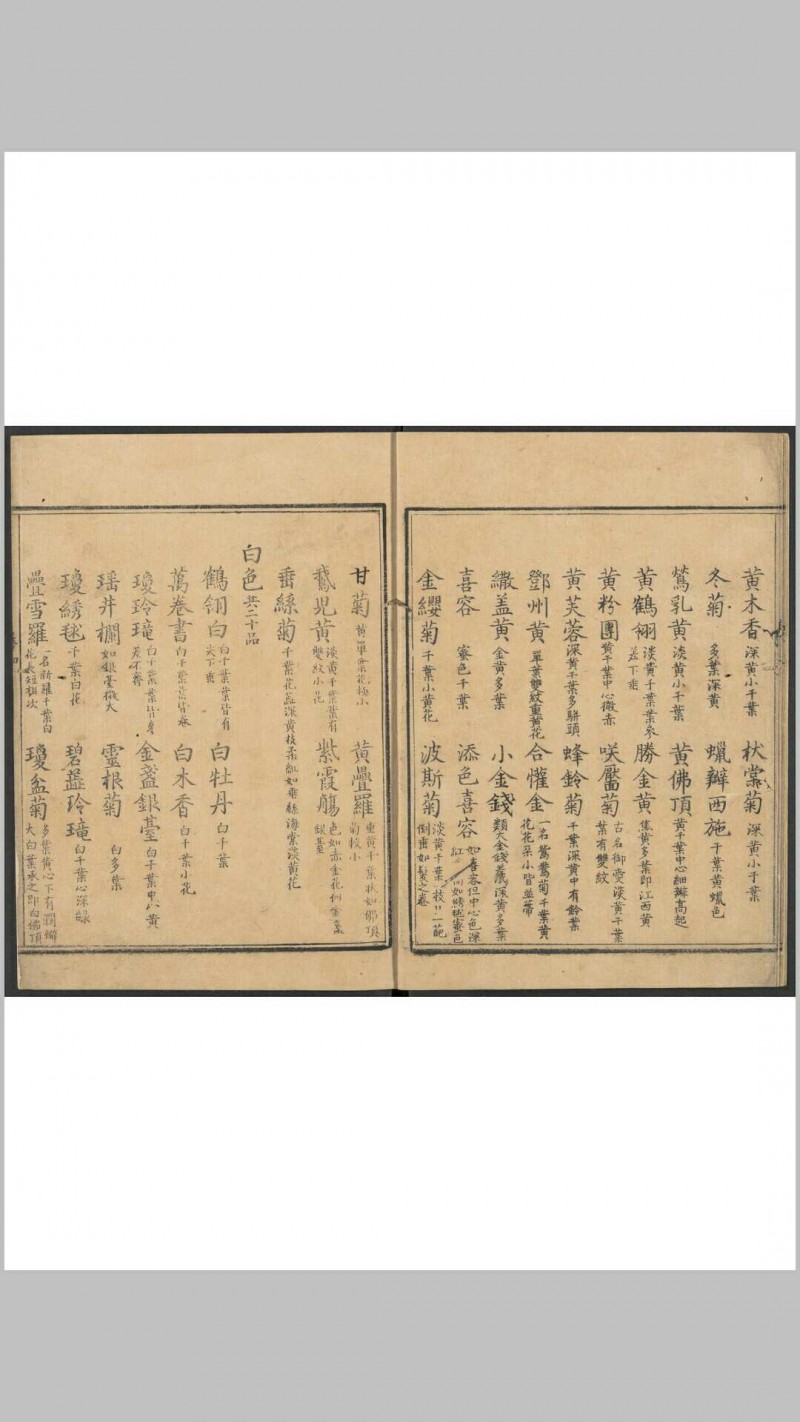 黃木香 深黃小千葉 棣棠菊 深黃小千葉
冬菊 多葉深黃 蠟瓣西施 千葉黃蠟色
鶯乳黃 淡黃小千葉 黃佛頂 黃千葉中心細瓣高起
黃鶴翎 淡黃千葉葉參差下垂 勝金黃 焦黃多葉即江西黃
黃粉團 黃千葉中心微赤 笑靨菊 古名御愛淡黃千葉葉有雙紋
黃芙蓉 深黃千葉多駢頭 蜂鈴菊 千葉深黃中有鈴葉
鄧州黃 單葉雙紋重黃花 合懽金 一名鴛鴦菊千葉黃花花朵小皆並蒂
繖盖黃 金黃多葉 小金錢 類大金錢 深黃多葉
喜容 蜜色千葉 添色喜容 如喜容但中心色深紅 如綉毬蜜色
金纓菊 千葉小黃花 波斯菊 淡黃千葉 枝 一葩倒垂如髮之卷
甘菊 黃單葉花極小 黃疊羅 重黃千葉狀如佛頂菊較小
鵞兒黃 淡黃千葉葉有雙紋小花 紫霞觴 色如赤金花側金盞銀臺
垂絲菊 千葉花蕊深黃枝柔亂如垂絲海棠淡黃花
白色 共二十品
鶴翎白 白千葉葉皆有尖下垂 白牡丹 白千葉
萬卷書 白千葉葉皆卷 白木香 白千葉小花
瓊玲瓏 白千葉葉皆參差不齊 金盞銀臺 白千葉中心黃
瑶井欄 如銀臺微大 靈根菊 白多葉
瓊綉毬 千葉白花 碧蕊玲瓏 白千葉心深綠
疊雪羅 一名新羅千葉白花長短相次 瓊盆菊 多葉黃心下有濶瓣大白葉承之即白佛頂